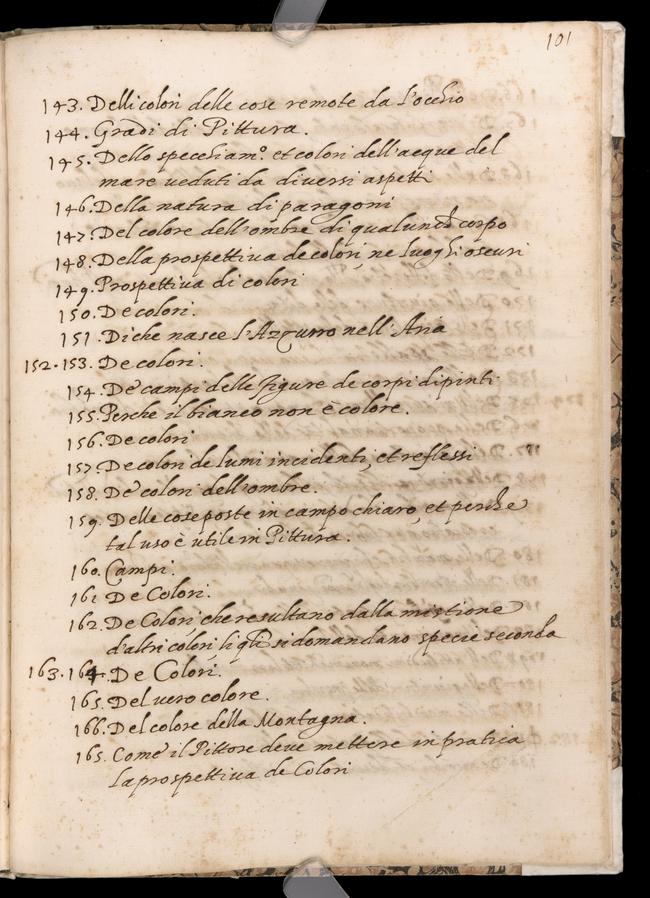 101
143. Delli colori delle cose remote da l'occhio
144. Gradi di Pittura.
145. Dello specchiam.º et colori dell'acque del
mare veduti da diversi aspetti
146. Della natura di paragoni
147. Del colore dell'ombre di qualunch corpo
148. Della prospettiva de colori, ne luoghi oscuri
149. Prospettiva di colori
150. De colori.
151. Di che nasce l'Azzurro nell'Aria
152. 153. De colori.
154. De' campi delle figure de corpi dipinti
155. Perche il bianco non è colore.
156. De colori
157. De colori de lumi incidenti, et reflessi
158. De' colori dell'ombre.
159. Delle cose poste in campo chiaro, et perche
tal uso è utile in Pittura.
160. Campi.
161 De Colori.
162. De Colori, che resultano dalla mistione
d'altri colori, li qli si domandano specie seconda
163. 164. De Colori.
165. Del vero colore.
166. Del colore della Montagna.
165. Come il Pittore deve mettere in pratica
la prospettiva de Colori